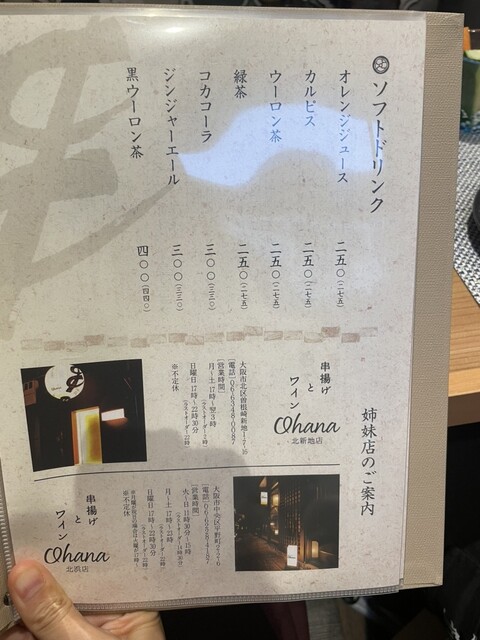 ソフトドリンク
オレンジジュース 二五〇(二七五)
カルピス 二五〇(二七五)
ウーロン茶 二五〇(二七五)
緑茶 二五〇(二七五)
コカコーラ 三〇〇(三三〇)
ジンジャーエール 三〇〇(三三〇)
黒ウーロン茶 四〇〇(四四〇)
姉妹店のご案内
串揚げ
と
ワイン
Ohana
北新地店
大阪市北区曽根崎新地1-7-16
[営業時間]
月〜土 17時〜翌3時
日曜日 17時〜22時30分
※不定休
串揚げ
と
ワイン
Ohana
北浜店
[営業時間]
火〜日 11時30分〜15時
月〜土 17時〜23時
日曜日 17時〜22時30分
※不定休